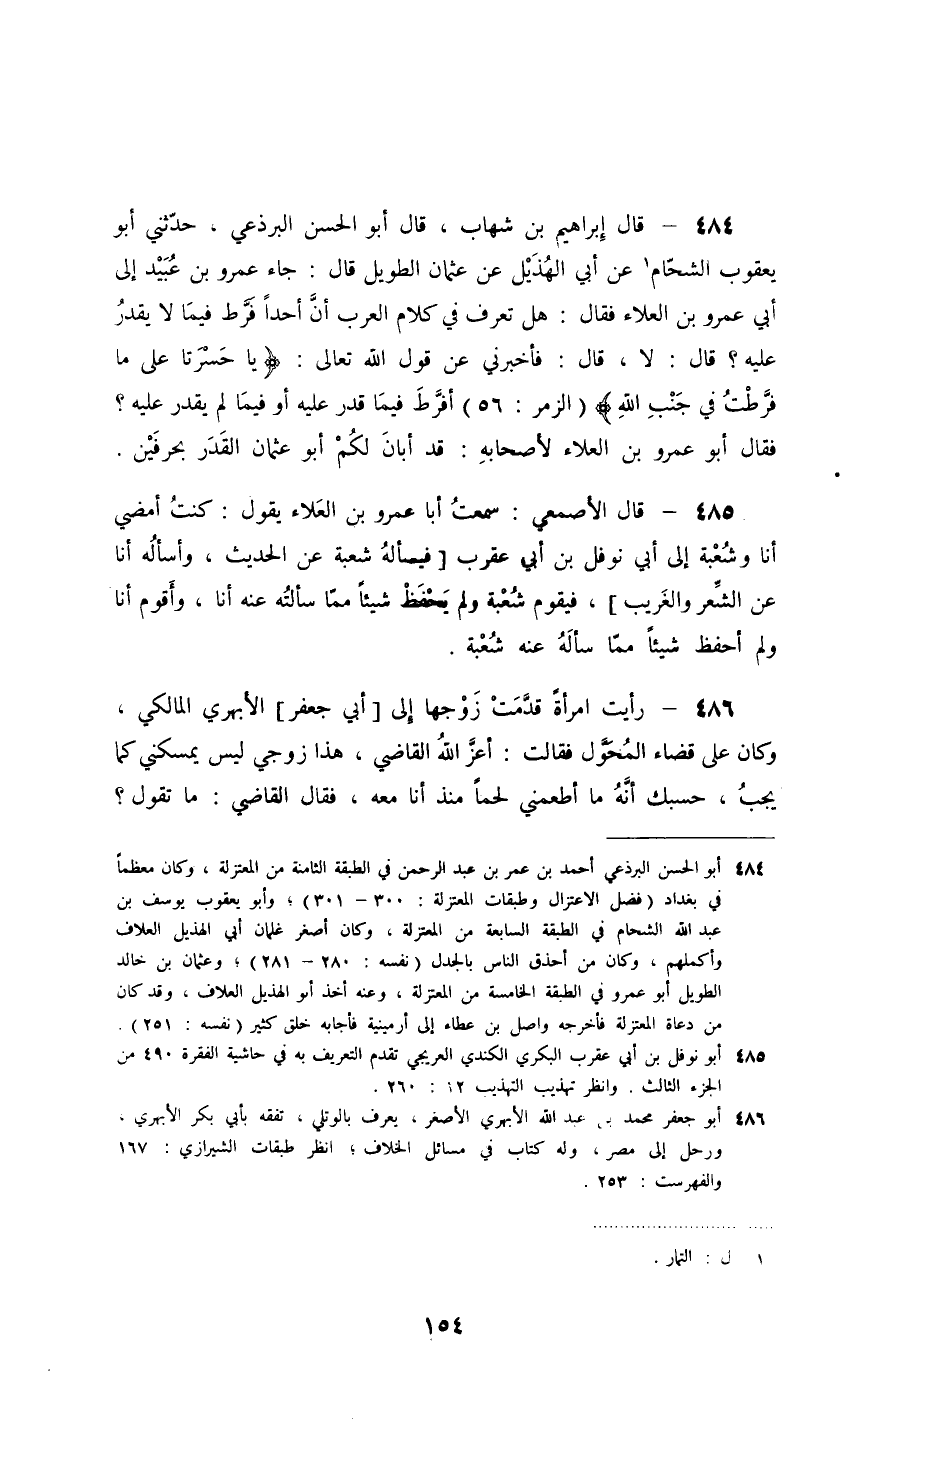 ٤٨٤ – قال إبراهيم بن شهاب ، قال أبو الحسن البرذعي ، حدّثني أبو
يعقوب الشحّام١ عن أبي الهُذَيْل عن عثمان الطويل قال : جاء عمرو بن عُبَيْد إلى
أبي عمرو بن العلاء فقال : هل تعرف في كلام العرب أنَّ أحداً فَرَّط فيمَا لا يقدرُ
عليه ؟ قال : لا ، قال : فأخبرني عن قول الله تعالى : ﴿ يا حَسْرَتا على ما
فرَّطْتُ في جَنْبِ اللهِ ﴾ ( الزمر : ٥٦ ) أفرَّطَ فيمَا قدر عليه أو فيمَا لم يقدر عليه ؟
فقال أبو عمرو بن العلاء لأصحابهِ : قد أبانَ لكُمْ أبو عثمان القَدَر بحرفَيْن .
٤٨٥ – قال الأصمعي : سمعتُ أبا عمرو بن العَلاء يقول : كنتُ أمضي
أنا وشُعْبة إلى أبي نوفل بن أبي عقرب [ فيسألهُ شعبة عن الحديث ، وأسألُه أنا
عن الشِّعر والغَريب ] ، فيقوم شُعْبة ولم يَحْفَظْ شيئاً ممّا سألتُه عنه أنا ، وأَقوم أنا
ولم أحفظ شيئاً ممّا سألَهُ عنه شُعْبة .
٤٨٦ – رأيت امرأةً قدَّمَتْ زَوْجها إلى [ أبي جعفر ] الأبهري المالكي ،
وكان على قضاء المُحَوَّل فقالت : أعزَّ اللهُ القاضي ، هذا زوجي ليس يمسكني كما
يجبُ ، حسبك أنَّهُ ما أطعمني لحماً منذ أنا معه ، فقال القاضي : ما تقول ؟
٤٨٤ أبو الحسن البرذعي أحمد بن عمر بن عبد الرحمن في الطبقة الثامنة من المعتزلة ، وكان معظماً
في بغداد ( فضل الاعتزال وطبقات المعتزلة : ٣٠٠ – ٣٠١ ) ؛ وأبو يعقوب يوسف بن
عبد الله الشحام في الطبقة السابعة من المعتزلة ، وكان أصغر غلمان أبي الهذيل العلاف
وأكملهم ، وكان من أحذق الناس بالجدل ( نفسه : ٢٨٠ – ٢٨١ ) ؛ وعثمان بن خالد
الطويل أبو عمرو في الطبقة الخامسة من المعتزلة ، وعنه أخذ أبو الهذيل العلاف ، وقد كان
من دعاة المعتزلة فأخرجه واصل بن عطاء إلى أرمينية فأجابه خلق كثير ( نفسه : ٢٥١ ) .
٤٨٥ أبو نوفل بن أبي عقرب البكري الكندي العريجي تقدم التعريف به في حاشية الفقرة ٤٩٠ من
الجزء الثالث . وانظر تهذيب التهذيب ١٢ : ٢٦٠ .
٤٨٦ أبو جعفر محمد بن عبد الله الأبهري الأصغر ، يعرف بالوتلي ، تفقه بأبي بكر الأبهري ،
ورحل إلى مصر ، وله كتاب في مسائل الخلاف ؛ انظر طبقات الشيرازي : ١٦٧
والفهرست : ٢٥٣ .
١ ل : التمار .
١٥٤